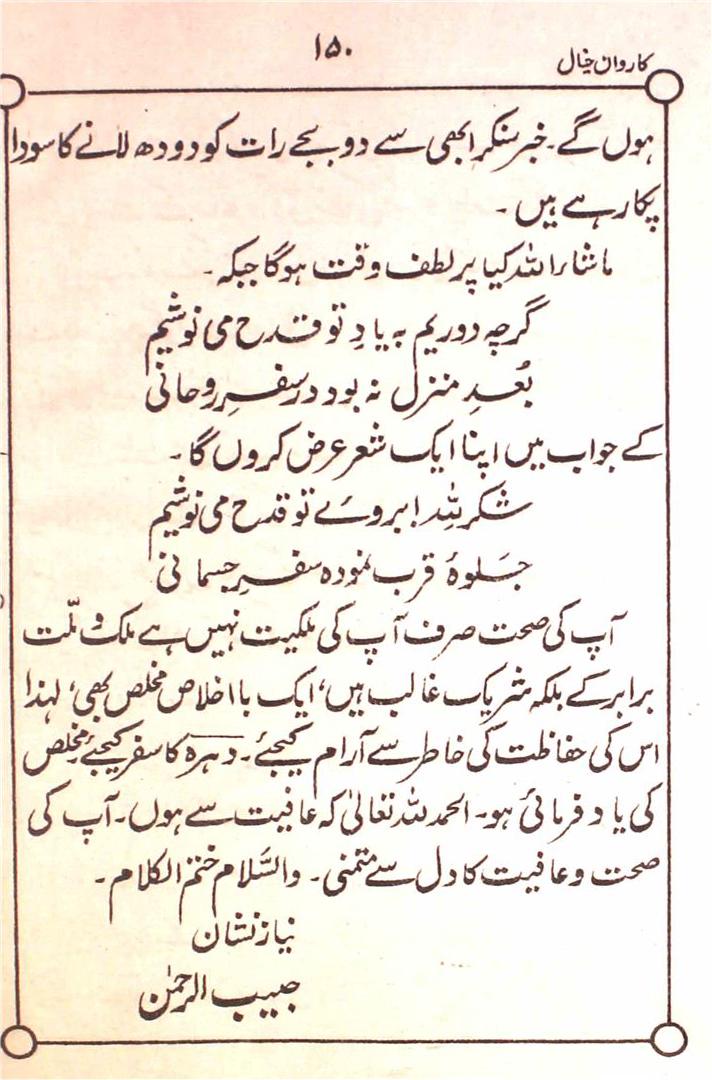 ۱۵۰
کاروان خیال
ہوں گے۔ خبر سنکر ابھی سے دو بجے رات کو دودھ لانے کا سودا
پکا رہے ہیں ۔
ماشاء اللہ کیا پر لطف وقت ہوگا جبکہ۔
گرچہ دوریم بہ یادِ تو قدح می نوشیم
بُعدِ منزل نہ بود در سفرِ روحانی
کے جواب میں اپنا ایک شعر عرض کروں گا ۔
شکر للہ ابروئے تو قدح می نوشیم
جَلوۂ قرب نمودہ سفرِ جسمانی
آپ کی صحت صرف آپ کی ملکیت نہیں ہے ملک و ملّت
برابر کے بلکہ شریک غالب ہیں، ایک بااخلاص مخلص بھی، لہذا
اس کی حفاظت کی خاطر سے آرام کیجئے ۔ دہرہ کا سفر کیجئے۔ مخلص
کی یاد فرمائی ہو۔ الحمد للہ تعالیٰ کہ عافیت سے ہوں۔ آپ کی
صحت و عافیت کا دل سے متمنی۔ والسَّلام ختم الکلام ۔
نیاز نشان
حبیب الرحمٰن